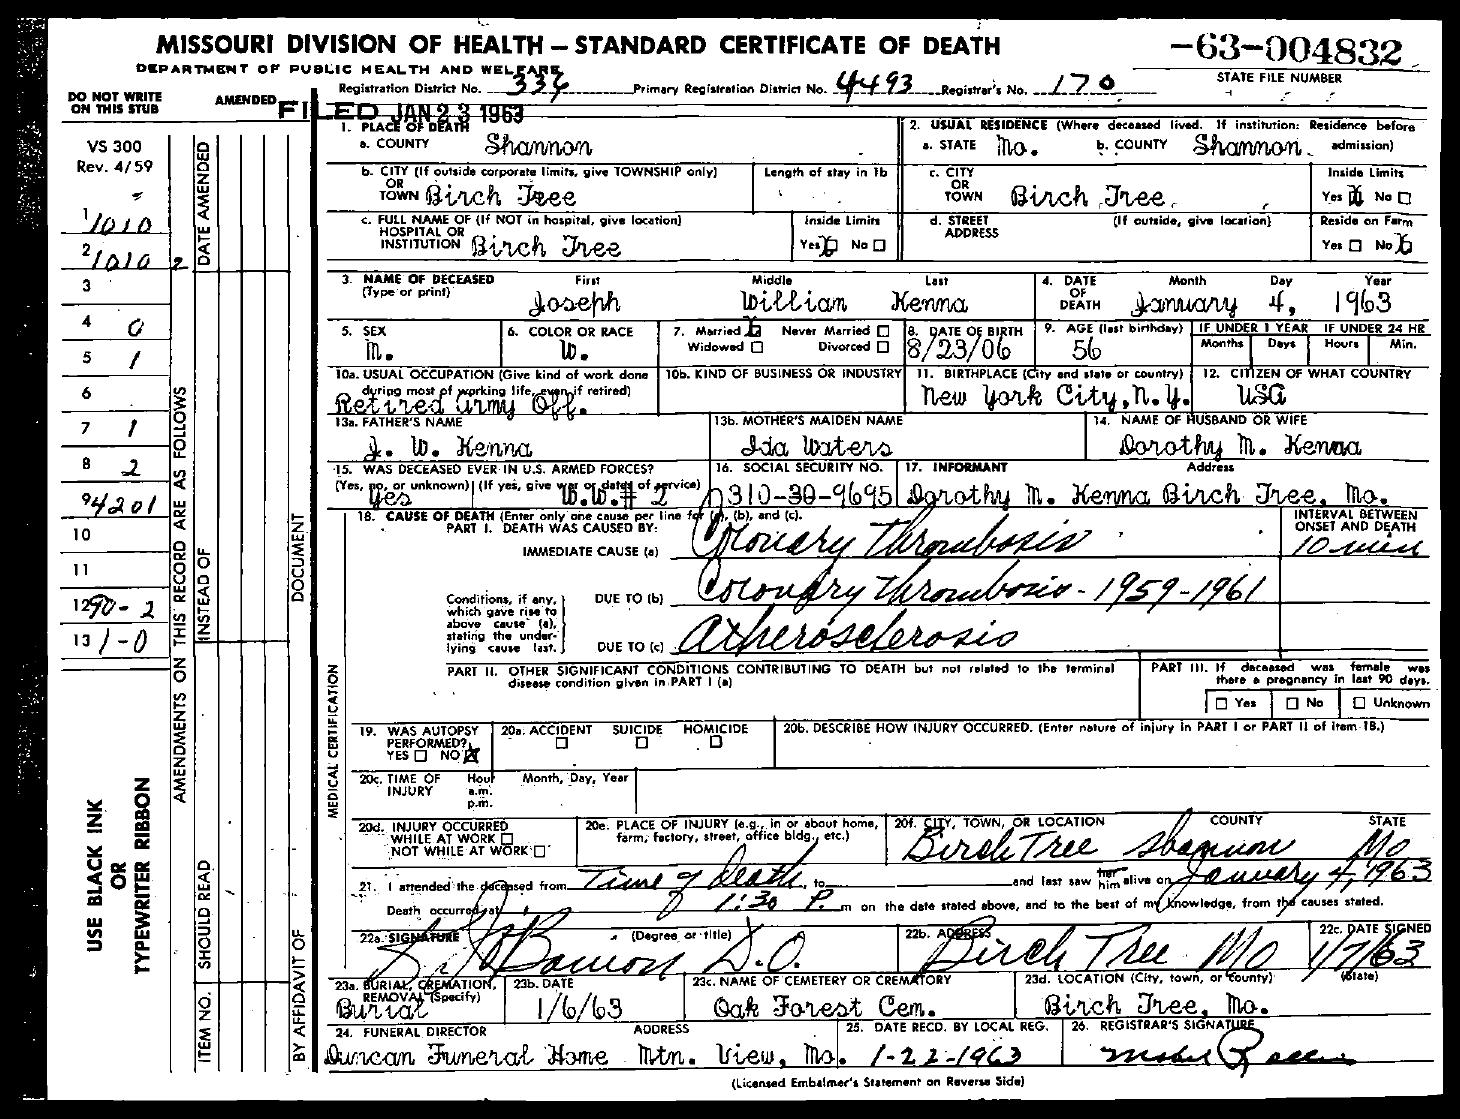 MISSOURI DIVISION OF HEALTH — STANDARD CERTIFICATE OF DEATH
-63-004832
DEPARTMENT OF PUBLIC HEALTH AND WELFARE
STATE FILE NUMBER
Registration District No. 336 Primary Registration District No. 4493 Registrar's No. 170
DO NOT WRITE ON THIS STUB
AMENDED
FILED JAN 23 1963
VS 300
Rev. 4/59
1 1010
2 1010 2
3
4 0
5 1
6
7 1
8 2
9 4201
10
11
12 90-2
13 1-0
USE BLACK INK
OR
TYPEWRITER RIBBON
AMENDMENTS ON THIS RECORD ARE AS FOLLOWS
DATE AMENDED
INSTEAD OF
SHOULD READ
ITEM NO.
DOCUMENT
BY AFFIDAVIT OF
1. PLACE OF DEATH
a. COUNTY Shannon
2. USUAL RESIDENCE (Where deceased lived. If institution: Residence before admission)
a. STATE Mo. b. COUNTY Shannon
b. CITY (If outside corporate limits, give TOWNSHIP only) OR TOWN Birch Tree
Length of stay in 1b
c. CITY OR TOWN Birch Tree
Inside Limits Yes X No
c. FULL NAME OF (If NOT in hospital, give location) HOSPITAL OR INSTITUTION Birch Tree
Inside Limits Yes X No
d. STREET ADDRESS (If outside, give location)
Reside on Farm Yes No X
3. NAME OF DECEASED (Type or print) First Middle Last
Joseph Willian Kenna
4. DATE OF DEATH Month Day Year
January 4, 1963
5. SEX M.
6. COLOR OR RACE W.
7. Married X Never Married
Widowed Divorced
8. DATE OF BIRTH 8/23/06
9. AGE (last birthday) 56
IF UNDER 1 YEAR Months Days
IF UNDER 24 HR Hours Min.
10a. USUAL OCCUPATION (Give kind of work done during most of working life, even if retired)
Retired Army Off.
10b. KIND OF BUSINESS OR INDUSTRY
11. BIRTHPLACE (City and state or country)
New York City, N.Y.
12. CITIZEN OF WHAT COUNTRY
USA
13a. FATHER'S NAME
J. W. Kenna
13b. MOTHER'S MAIDEN NAME
Ida Waters
14. NAME OF HUSBAND OR WIFE
Dorothy M. Kenna
15. WAS DECEASED EVER IN U.S. ARMED FORCES?
(Yes, no, or unknown) (If yes, give war or dates of service)
Yes W.W.# 2
16. SOCIAL SECURITY NO.
310-30-9695
17. INFORMANT Address
Dorothy M. Kenna Birch Tree, Mo.
MEDICAL CERTIFICATION
18. CAUSE OF DEATH (Enter only one cause per line for (a), (b), and (c).
PART I. DEATH WAS CAUSED BY:
INTERVAL BETWEEN ONSET AND DEATH
IMMEDIATE CAUSE (a) Coronary Thrombosis 10 min
Conditions, if any, which gave rise to above cause (a), stating the underlying cause last.
DUE TO (b) Coronary Thrombosis - 1959-1961
DUE TO (c) Atherosclerosis
PART II. OTHER SIGNIFICANT CONDITIONS CONTRIBUTING TO DEATH but not related to the terminal disease condition given in PART I (a)
PART III. If deceased was female was there a pregnancy in last 90 days.
Yes No Unknown
19. WAS AUTOPSY PERFORMED? YES NO X
20a. ACCIDENT SUICIDE HOMICIDE
20b. DESCRIBE HOW INJURY OCCURRED. (Enter nature of injury in PART I or PART II of item 18.)
20c. TIME OF INJURY Hour a.m. p.m. Month, Day, Year
20d. INJURY OCCURRED
WHILE AT WORK
NOT WHILE AT WORK
20e. PLACE OF INJURY (e.g., in or about home, farm, factory, street, office bldg., etc.)
20f. CITY, TOWN, OR LOCATION COUNTY STATE
Birch Tree Shannon Mo
21. I attended the deceased from Time of death, to and last saw her him alive on January 4, 1963
Death occurred at 1:30 P. m on the date stated above, and to the best of my knowledge, from the causes stated.
22a. SIGNATURE (Degree or title)
D.O.
22b. ADDRESS
Birch Tree Mo
22c. DATE SIGNED
1/7/63
23a. BURIAL, CREMATION, REMOVAL (Specify)
Burial
23b. DATE
1/6/63
23c. NAME OF CEMETERY OR CREMATORY
Oak Forest Cem.
23d. LOCATION (City, town, or county) (State)
Birch Tree, Mo.
24. FUNERAL DIRECTOR ADDRESS
Duncan Funeral Home Mtn. View, Mo.
25. DATE RECD. BY LOCAL REG.
1-22-1963
26. REGISTRAR'S SIGNATURE
(Licensed Embalmer's Statement on Reverse Side)